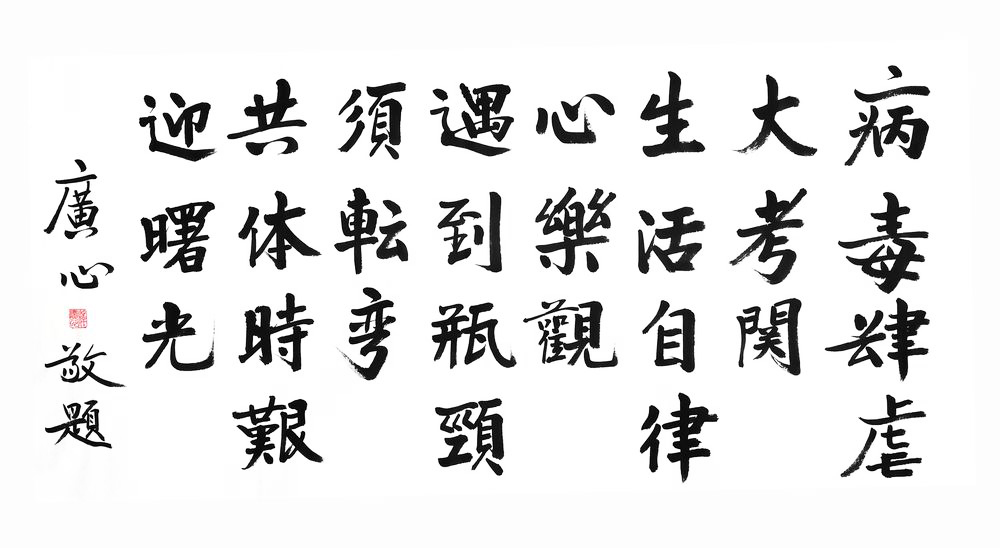 病毒肆虐
大考関
生活自律
心樂觀
遇到瓶頸
須転弯
共体時艱
迎曙光
廣心
敬題